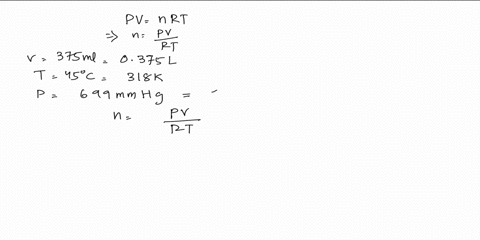 PV = nRT
⇒ n = PV/RT
V = 375ml = 0.375L
T = 45°C = 318K
P = 699 mm Hg =
n = PV/RT